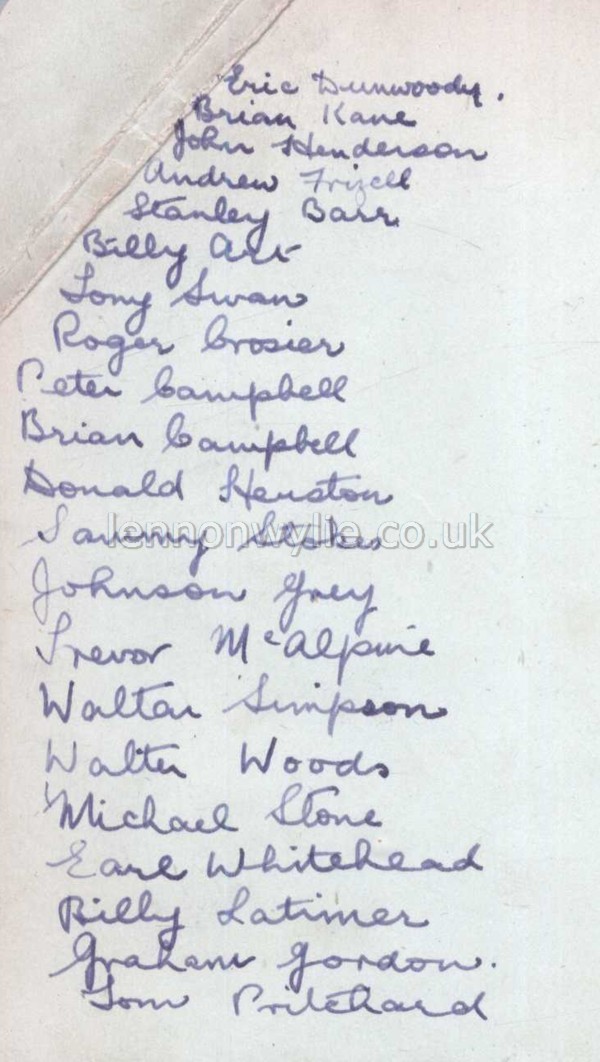 Eric Dunwoody.
Brian Kane
John Henderson
Andrew Frizell
Stanley Barr
Billy Art
Tony Swan
Roger Crosier
Peter Campbell
Brian Campbell
Donald Heuston
Sammy Stokes
lennonwylie.co.uk
Johnson Grey
Trevor McAlpine
Walter Simpson
Walter Woods
Michael Stone
Earl Whitehead
Billy Latimer
Graham Gordon.
Tom Pritchard